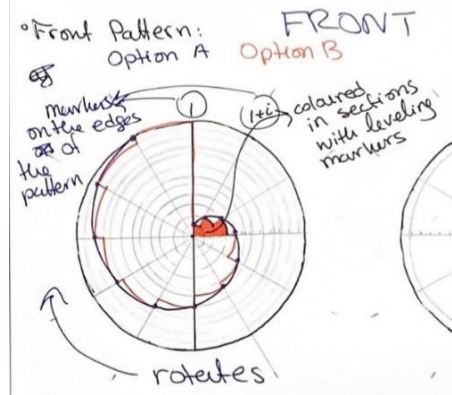 °Front Pattern:
FRONT
Option A Option B
markers
on the edges
of
the
pattern
1
1+i
coloured
in sections
with leveling
markers
rotates